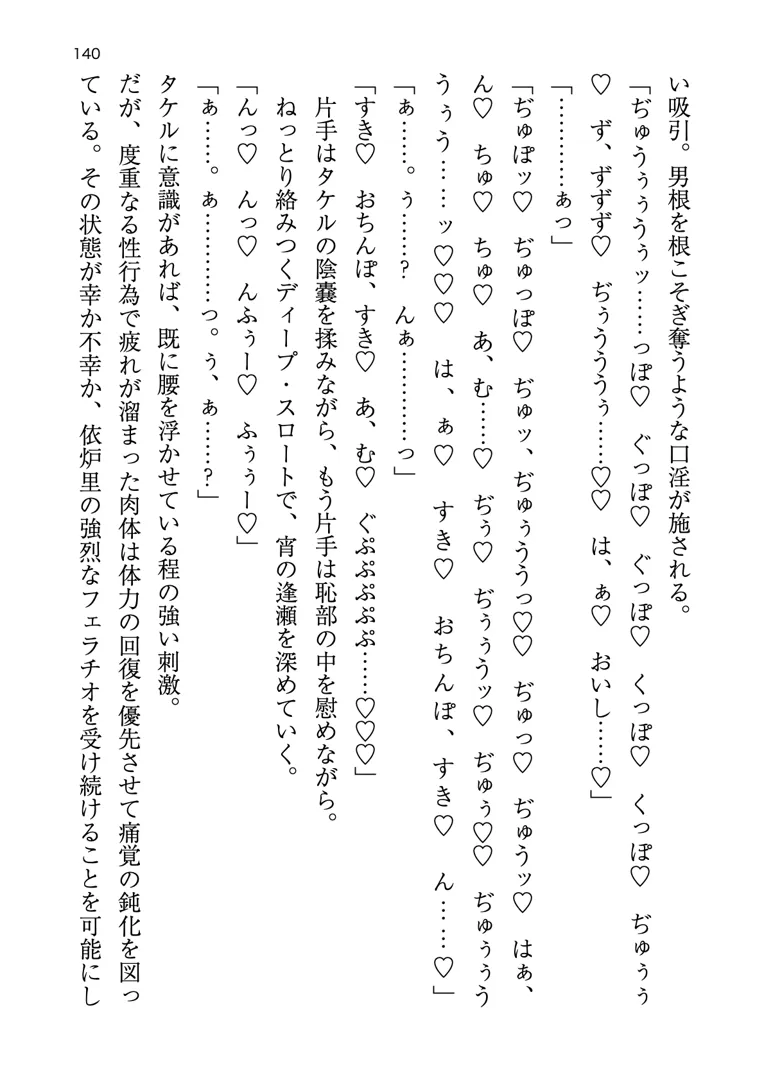 140
い吸引。男根を根こそぎ奪うような口淫が施される。
「ぢゅうぅぅうぅッ……っぽ♡　ぐっぽ♡　ぐっぽ♡　くっぽ♡　くっぽ♡　ぢゅぅぅ
♡　ず、ずずず♡　ぢぅうううぅ……♡♡　は、ぁ♡　おいし……♡」
「…………ぁっ」
「ぢゅぽッ♡　ぢゅっぽ♡　ぢゅッ、ぢゅぅううっ♡♡　ぢゅっ♡　ぢゅうッ♡　はぁ、
ん♡　ちゅ♡　ちゅ♡　あ、む……♡　ぢぅ♡　ぢぅぅうッ♡　ぢゅぅ♡♡　ぢゅぅぅう
うぅう……ッ♡♡♡　は、ぁ♡　すき♡　おちんぽ、すき♡　ん……♡」
「ぁ……。ぅ……？　んぁ…………っ」
「すき♡　おちんぽ、すき♡　あ、む♡　ぐぷぷぷぷぷ……♡♡♡」
片手はタケルの陰嚢を揉みながら、もう片手は恥部の中を慰めながら。
ねっとり絡みつくディープ・スロートで、宵の逢瀬を深めていく。
「んっ♡　んっ♡　んふぅー♡　ふぅぅー♡」
「ぁ……。ぁ…………っ。う、ぁ……？」
タケルに意識があれば、既に腰を浮かせている程の強い刺激。
だが、度重なる性行為で疲れが溜まった肉体は体力の回復を優先させて痛覚の鈍化を図っ
ている。その状態が幸か不幸か、依炉里の強烈なフェラチオを受け続けることを可能にし